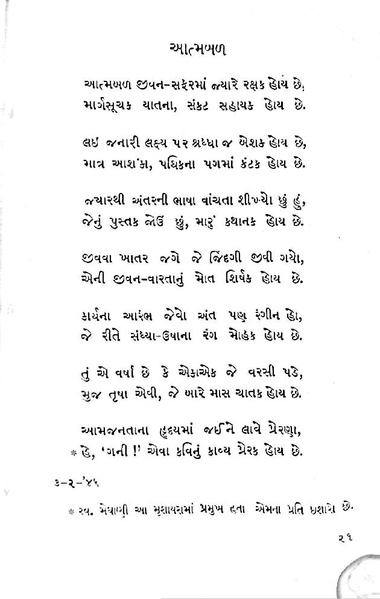 આત્મબળ
આત્મબળ જીવન-સફરમાં જ્યારે રક્ષક હોય છે,
માર્ગસૂચક યાતના, સંકટ સહાયક હોય છે.
લઈ જનારી લક્ષ્ય પર શ્રધ્ધા જ બેશક હોય છે,
માત્ર આશંકા, પથિકના પગમાં કંટક હોય છે.
જ્યારથી અંતરની ભાષા વાંચતા શીખ્યો છું હું,
જેનું પુસ્તક જોઉં છું, મારું કથાનક હોય છે.
જીવવા ખાતર જગે જે જિંદગી જીવી ગયો,
એની જીવન-વારતાનું મોત શિર્ષક હોય છે.
કાર્યના આરંભ જેવો અંત પણ રંગીન હો,
જે રીતે સંધ્યા-ઉષાના રંગ મોહક હોય છે.
તું એ વર્ષા છે કે એકાએક જે વરસી પડે,
મુજ તૃષા એવી, જે બારે માસ ચાતક હોય છે.
આમજનતાના હૃદયમાં જઈને લાવે પ્રેરણા,
* હે, 'ગની !' એવા કવિનું કાવ્ય પ્રેરક હોય છે.
૩-૨-'૪૫
* સ્વ. મેઘાણી આ મુશાયરામાં પ્રમુખ હતા એમના પ્રતિ ઇશારો છે.
૨૧